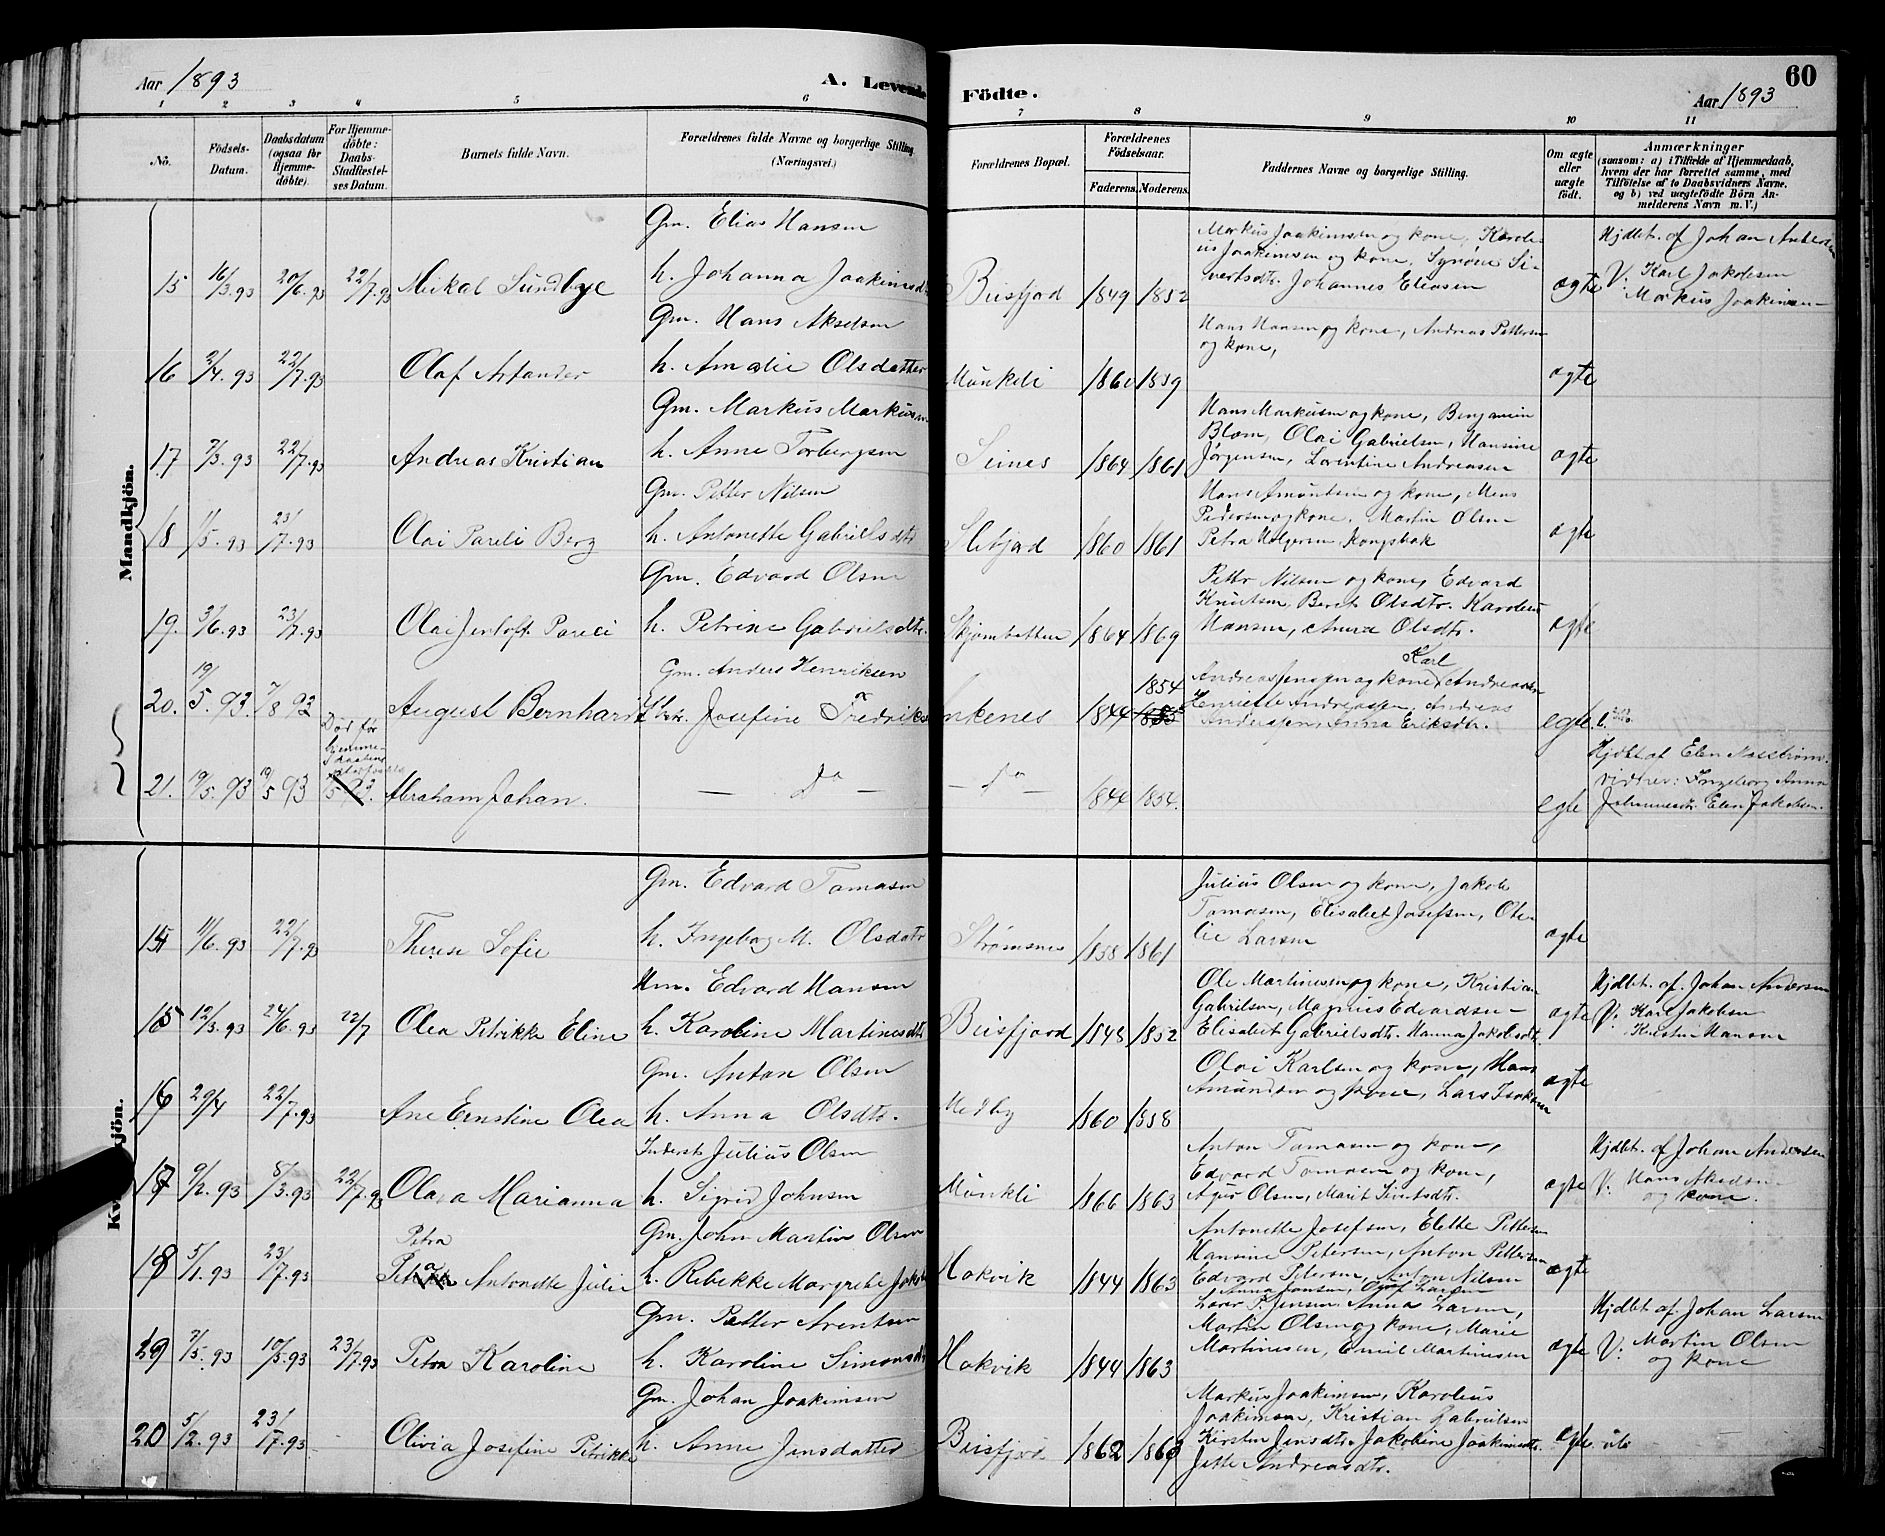 Aar 1893
A. Levende Födte.
60
Aar 1893
1 2 3 4 5 6 7 8 9 10 11
No.
Födsels-
Datum.
Daabsdatum
(ogsaa for
Hjemme-
döbte).
For Hjemme-
döbte:
Daabs-
Stadfæstel-
ses Datum.
Barnets fulde Navn.
Forældrenes fulde Navne og borgerlige Stilling
(Næringsvei.)
Forældrenes Bopæl.
Forældrenes
Födselsaar.
Faderens. Moderens.
Faddernes Navne og borgerlige Stilling.
Om ægte
eller
uægte
födt.
Anmærkninger
(saasom: a) i Tilfælde af Hjemmedaab,
hvem der har forrettet samme, med
Tilföielse af to Daabsvidners Navne.
og b) ved uægtefödte Börn An-
melderens Navn m. V.)
Mandkjön.
Gm. Elias Hansen
15 16/3.93 20/6.93 22/7.93 Mikal Sundbye h. Johanna Joakimsdt Beisfjord 1849 1852 ægte
Markus Joakimsen og kone, Karoli-
us Joakimsen og kone, Synove Si-
vertsdtr. Johannes Eliasen
Hjdbt. af Johan Andersen
V: Karl Jakobsen
Markus Joakimsen
Gm. Hans Akselsen
16 2/4.93 22/7.93 Olaf Arfander h. Amalie Olsdatter Münkeli 1860 1859 ægte
Hans Hansen og kone, Andreas Pettersen
og kone,
Gm. Markus Markusen
17 7/3.93 22/7.93 Andreas Kristian h. Anne Torbergsen Seines 1864 1861 ægte
Hans Markusen og kone, Benjamin
Blom, Olai Gabrielsen, Hansine
Jørgensen, Lorentine Andreasen
Gm. Petter Nilsen
18 11/5.93 23/7.93 Olai Pareli Berg h. Antonette Gabrielsdtr 1860 1861 ægte
Hans Amundsen og kone, Mons
Pedersen og kone. Martin Olsen
Petra Holgersen Kongsbak
Gm. Edvard Olsen
19. 3/6.93 23/7.93 Olai Jentoft Pareli h. Petrine Gabrielsdtr. 1864 1869 ægte
Petter Nilsen og kone, Edvard
Knutsen, Beret Olsdtr. Karolius
Hansen, Anna Olsdtr.
Gm. Anders Henriksen
20. 19/5.93. 7/8 93 August Bernhard Josefine Fredriks Ankenes 1844 1854 egte
Andreas Jensen og kone, Karl Andreasen
Henriette Andreassen, Andreas
Andersen, Anna Eriksdtr.
21. 19/5.93 19/5 93 Død før Hjemme- Abraham Johan. — Do — — Do — 1844 1854. egte
Hjdbt af Elen Nosstrøm
vidner: Ingeborg Anna
Johannesdt. Elen Jakobsen.
Kvindkjön.
Gm. Edvard Tomasen
14 11/6.93 22/7.93 Therese Sofie h. Ingeborg M. Olsdatr Strømsnes 1858 1861 ægte
Julius Olsen og kone, Jakob
Tomasen, Elisabet Josefsen, Ote-
lie Larsen
Hm. Edvard Hansen
15 12/3.93 24/6.93 22/7 Olea Petrikke Eline h. Karoline Martinesdtr Beisfjord 1848 1852 ægte
Ole Martinesen og kone, Kristian
Gabrielsen, Magnus Edvardsen
Elisabet Gabrielsdtr. Hanna Jakobsdt.
Hjdbt. af. Johan Andersen
V: Karl Jakobsen
Kirstin Hansen
Gm. Anton Olsen
16 29/4 22/7.93 Ane Ernstine Olea h. Anna Olsdtr. Medby 1860 1858 ægte
Olai Karlsen og kone, Hans
Amundsen og kone, Lars Isaksen
Inderst Julius Olsen
17 9/2.93 8/3.93 22/7.93 Olava Marianna h. Sigrid Johnsen Münkli 1866 1863 ægte
Anton Tomasen og kone,
Edvard Tomasen og kone,
Olsen, Marit Sivertsdtr.
Hjdbt. af Johan Andersen
V: Hans Akselsen
og kone.
Gm. John Martin Olsen
18 5/1.93 23/7.93 Petra Antonette Julie h. Rebekke Margrete Jakobs Hokvik 1844 1863 ægte
Antonette Josefsen, Elette Pettersen
Hansine Petersen, Anton Pettersen
Edvard Petersen, Anton Nilsen
Anna Jonsen, Oluf Larsen
Gm. Petter Arentsen
19 7/5.93 10/5.93 23/7.93 Petra Karoline h. Karoline Simonsdt Hokvik 1844 1863 ægte
P. Jensen Anna Larsen,
Martin Olsen og kone, Marie
Martinesen, Emil Martinesen
Hjdbt. af. Johan Larsen
V: Martin Olsen
og kone
Gm. Johan Joakimsen
20 5/2.93 23/7.93 Olivia Josefine Petrikke h. Anne Jensdatter Beisfjord 1862 1860 egte
Markus Joakimsen, Karolius
Joakimsen, Kristian Gabrielsen
Kirsten Jensdtr. Jakobine Joakimsdtr.
Jette Andreasdtr.